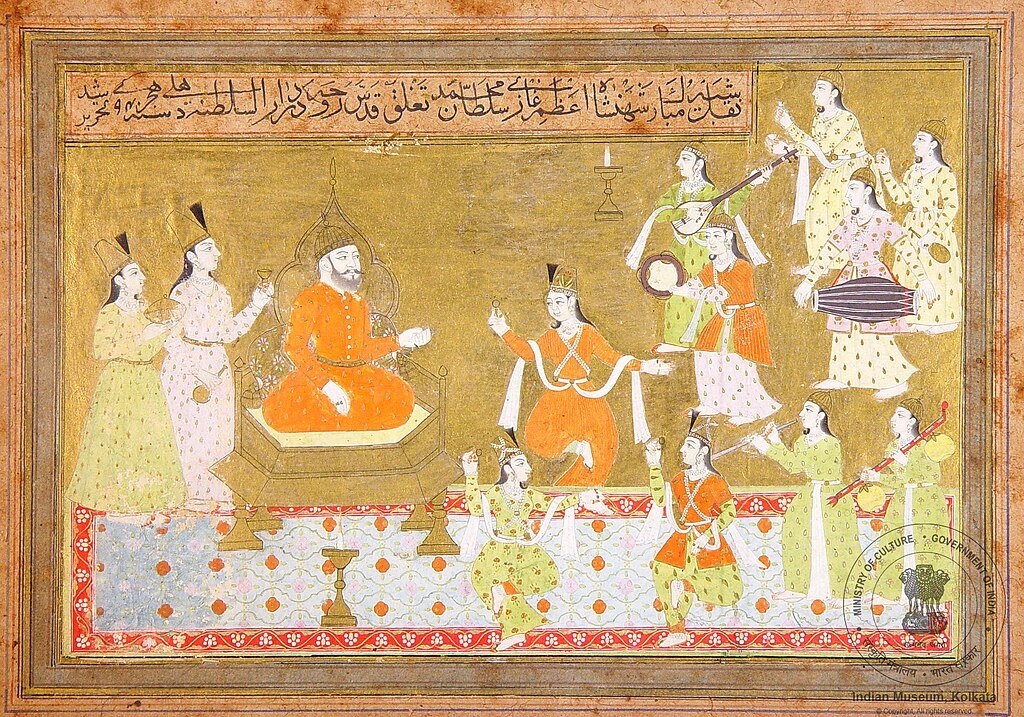 نقل شبیه مبارک شهنشاه اعظم غازے سلطان محمد تغلق قدس روحه در دار السلطنه دهلے سنه هجرے تحریر شد
MINISTRY OF CULTURE • GOVERNMENT OF INDIA
संस्कृति मंत्रालय • भारत सरकार
Indian Museum, Kolkata
© Copyright, All rights reserved.